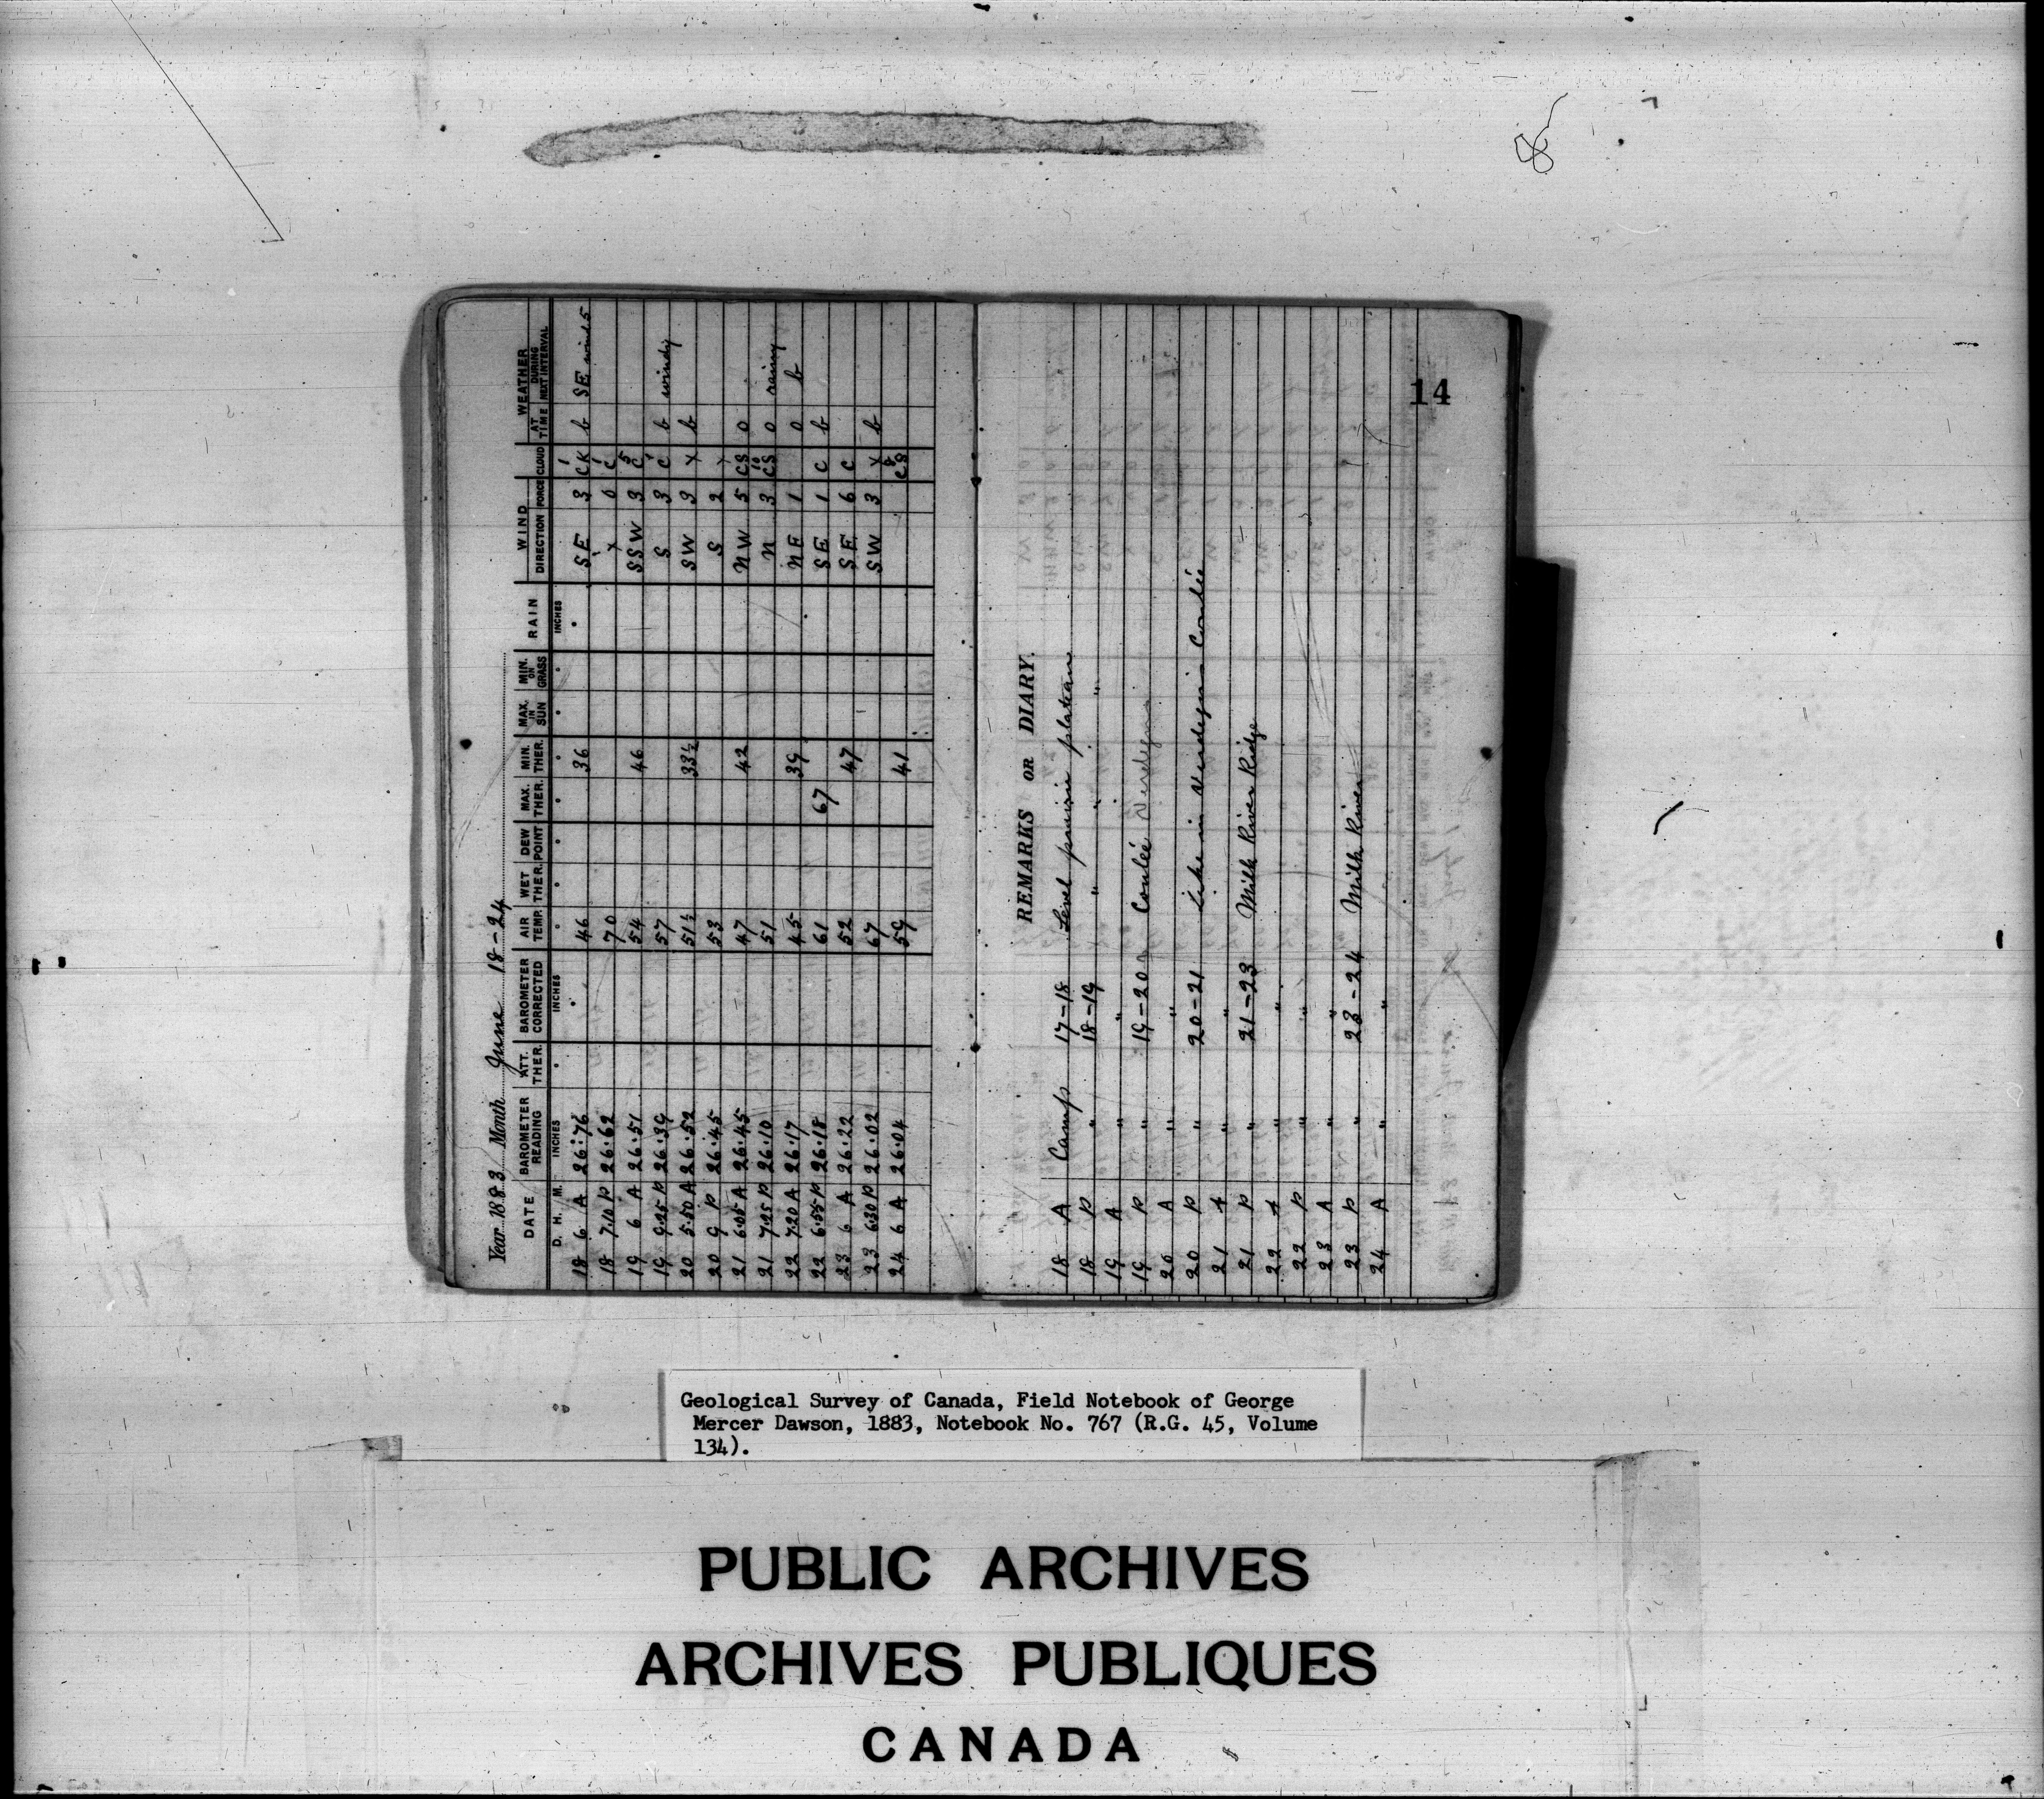 8
Year 1883 Month June 18-24
DATE BAROMETER READING ATT. THER. BAROMETER CORRECTED AIR TEMP. WET THER. DEW POINT MAX. THER. MIN. THER. MAX. IN SUN MIN. ON GRASS RAIN WIND CLOUD WEATHER
D. H. M. INCHES INCHES INCHES DIRECTION FORCE AT TIME DURING NEXT INTERVAL
18 6 A 26.76 46 36 SE 3 1 CK b SE wind 5
18 7.10 P 26.62 70 x 0 1 C
19 6 A 26.51 54 46 SSW 3 5 C
19 9.25 P 26.39 57 S 3 1 C b windy
20 5.50 A 26.52 51½ 33½ SW 3 x b
20 9 P 26.45 53 S 2 x
21 6.05 A 26.45 47 42 NW 5 CS 0
21 7.25 P 26.10 51 N 3 10 CS 0 rainy
22 7.20 A 26.17 45 39 NE 1 0 b
22 6.55 P 26.18 61 67 SE 1 C b
23 6 A 26.22 52 47 SE 6 C
23 6.30 P 26.02 67 SW 3 x b
24 6 A 26.04 59 41 8 CS
REMARKS OR DIARY.
14
18 A Camp 17-18 Level prairie plateau
18 P " 18-19 " " "
19 A " "
19 P " 19-20 Coulée Verdigris
20 A " "
20 P " 20-21 Lake in Verdigris Coulée
21 A " "
21 P " 21-23 Milk River Ridge
22 A " "
22 P " "
23 A " "
23 P " 23-24 Milk River
24 A " "
Geological Survey of Canada, Field Notebook of George
Mercer Dawson, 1883, Notebook No. 767 (R.G. 45, Volume
134).
PUBLIC ARCHIVES
ARCHIVES PUBLIQUES
CANADA